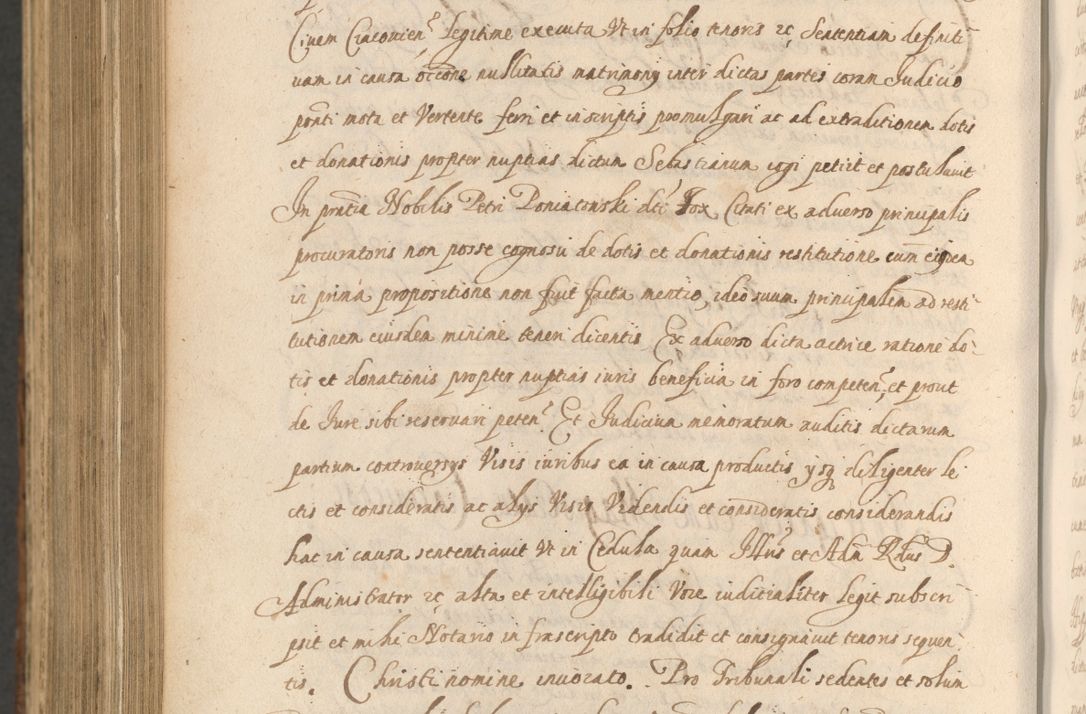 Civem Cracovien̄ legitime executa Ut in folio tenoris etc Sententiam definiti-
vam in causa occõne nullitatis matrimonij inter dictas partes coram Judicio
pñti mota et Vertente ferri et in scriptis promulgari ac ad extraditionem dotis
et donationis propter nuptias dictum Sebastianum cogi petiit et postulavit
In pñtia Nobilis Petri Poniatowski dti Citati ex adverso principalis
procuratoris non posse cognosci de dotis et donationis restitutione cum
in prima propositione non fuit facta mentio, ideo suum principalem ad resti-
tutionem eiusdem minime teneri dicentis Ex adverso dicta actrice ratione do-
tis et donationis propter nuptias iuris beneficia in foro competen̄, et prout
de Jure sibi reservari peten̄ Et Judicium memoratum auditis dictarum
partium controversys Visis iuribus ea in causa productis ysq diligenter le
ctis et consideratis ac alys Visis Videndis et consideratis considerandis
hac in causa sententiavit Ut in Cedula quam Illrus et Adm Rdus D.
Administrator etc alta et intelligibili Voce iudicialiter legit subscri
psit et mihi Notario infrascripto tradidit et consignavit tenoris sequen
tis. Christi nomine invocato. Pro Tribunali sedentes et solum